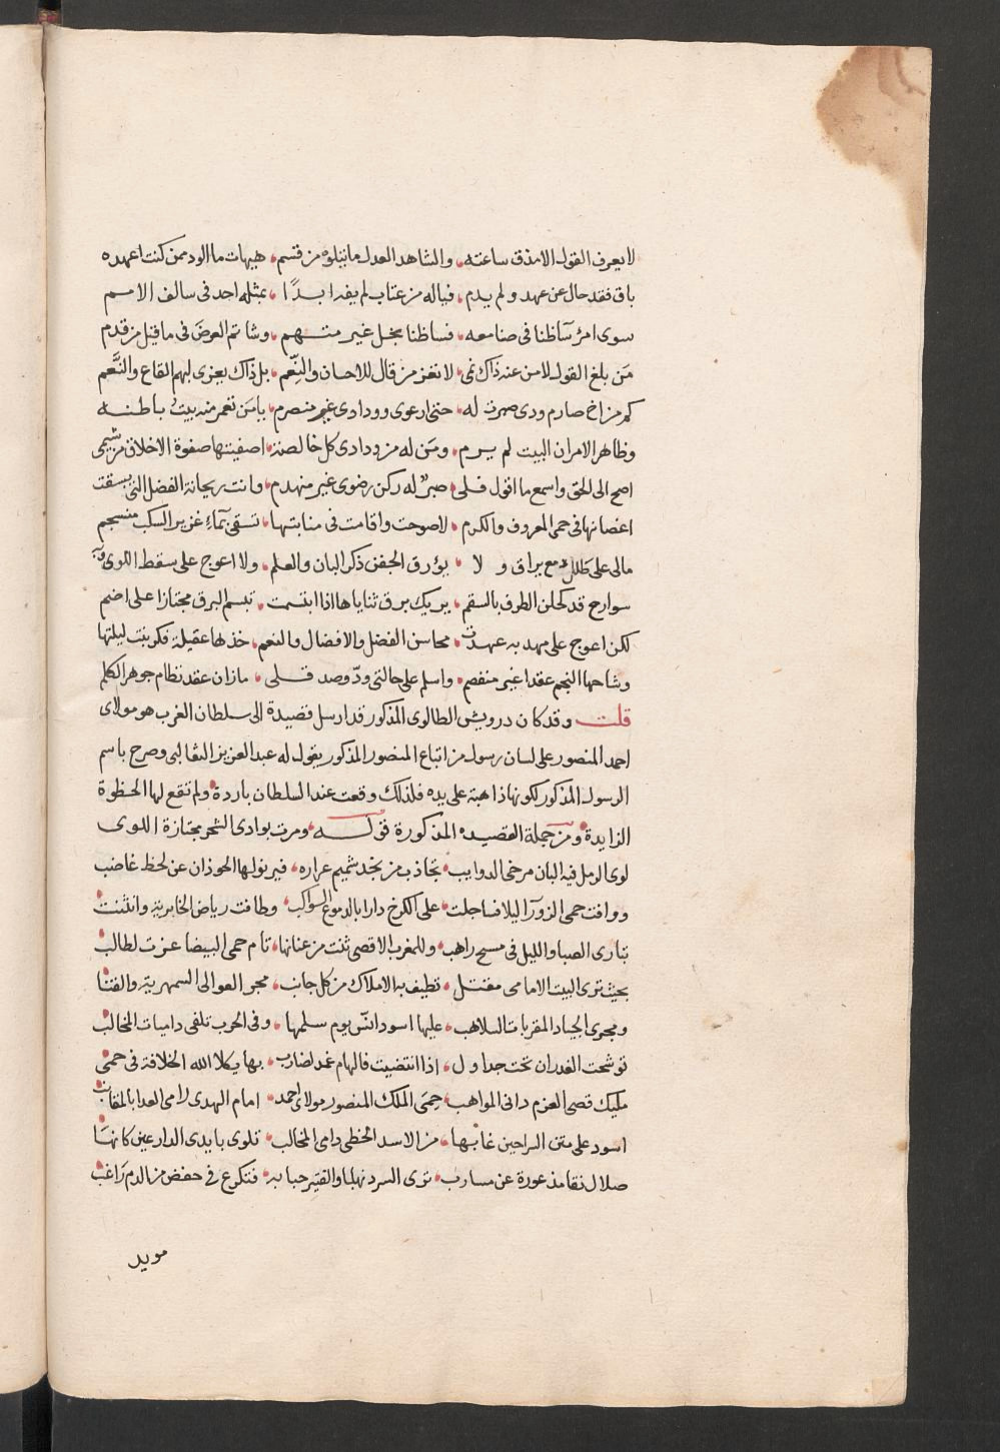 لا يعرف القول الا مذق ساعته، والشاهد العدل ما يتلوه من قسم، هيهات ما الود ممن كنت اعهده
باق فقد حال عن عهد ولم يدم، فياله من عتاب لم يفد ابدًا، بمثله احد فى سالف الامم
سوى امرٔ ساظنا فى صنا معه، فساظنا بخل غير متهم، وشاتم العرض فى ما قيل من قدم
مَن بلغ القول لا من عنه ذاك نمى، لا تغز من قال للاحان والنِّعم، بل ذاك يعزى لبهم القاع والنَّعم
كم من اخ صارم ودى صبرت له، حتى ارعوى وودادى غير منصرم، يا من تعمر منه بيت باطنه
وظاهر الامر ان البيت لم يرم، ومَن له من ودادى كل خالصة، اصفيتها صفوة الاخلاق من شيمى
اصح الى الحق واسمع ما اقول فلى، صبرٌ له ركن رضوى غير منهدم، وانت ريحانة الفضل التى بسقت
اغصانها فى حمى المعروف والكرم، لا صوحت واقامت فى منابتها، تسقى بماءٍ غزير السكب منسجم
مالى على طلل دمع يراق و لا، يؤرق الجفن ذكر البان والعلم، ولا اعوج على سقط اللوى وبه
سوارح قد كحلن الطرف بالسقم، يريك برق ثناياها اذا ابتسمت، تبسم البرق مجتازا على اضم
لكن اعوج على مهد به عهدت، محاسن الفضل والافضال والنعم، خذلها عقيلة فكر بنت ليلتها
وشاحها النجم عقدا غير منفصم، واسلم على حالتى ودّ وصد قلى، ما زان عقد نظام جوهر الكلم
قلت وقد كان درويش الطالوى المذكور قد ارسل قصيدة الى سلطان الغرب هو مولاى
احمد المنصور على لسان رسول من اتباع المنصور المذكور يقول له عبد العزيز الثعالبى وصرح باسم
الرسول المذكور لكونها ذاهبة على يده فلذلك وقعت عند السلطان باردة ولم تقع لها الحظوة
الزايدة ومن جملة القصيده المذكورة قوله، ومرت بوادى الشحر مجتازة اللوى
لوى الرمل فيه البان مرخى الدوايب، تجاذب من نجد شميم عراره، فيرنو لها الحوذان عن لحظ غاضب
ووافت حمى الزورآ ليلا فساجلت، على الكرخ دارا بالدموع السواكب، وطافت رياض الخابرية وانثنت
تبارى الصبا والليل فى مسح راهب، وللمغرب الاقصى ثنت من عنانها، تام حمى البيضا عزت لطالب
بحيث ترى البيت الامامى مقتل، تطيف به الاملاك من كل جانب، مجر العوالى السمهرية والقنا
ومجرى الجياد المقربات السلاهب، عليها اسود انس يوم سلمها، وفى الحرب تلفى داميات المخالب
توشحت الغدران تحت جداول، اذا انتضيت فالهام غمد لضارب، بها يكلا الله الخلافة فى حمى
مليك قصى العزم دانى المواهب، حِمَى الملك المنصور مولاى احمد، امام الهدى رامى العدا بالمقانب
اسود على متن السراحين غابها، من الاسد الخطى دامى المخالب، تلوى بايدى الدارعين كانها
صلال نقا مذعورة عن مسارب، ترى السرد نهلا والقتير حبابه، فتكرع فى حفض من الدم راغب
مويد